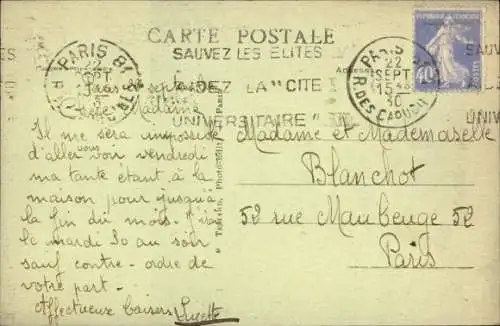 CARTE POSTALE
SAUVEZ LES ELITES
AIDEZ LA "CITE
UNIVERSITAIRE"
UNIVER
PARIS 81
22
SEPT
30
PARIS
22
SEPT
15
30
R. DES CAPUCINES
REPUBLIQUE FRANÇAISE
40
POSTES
Paris 22 septembre
Chère Madame
Il me sera impossible
d'aller vous voir vendredi
ma tante étant à la
maison pour jusqu'à
la fin du mois. J'irai
le mardi 30 au soir
sauf contre-ordre de
votre part.
Affectueux baisers
Lucette
Madame et Mademoiselle
Blanchot
52 rue Maubeuge 52
Paris